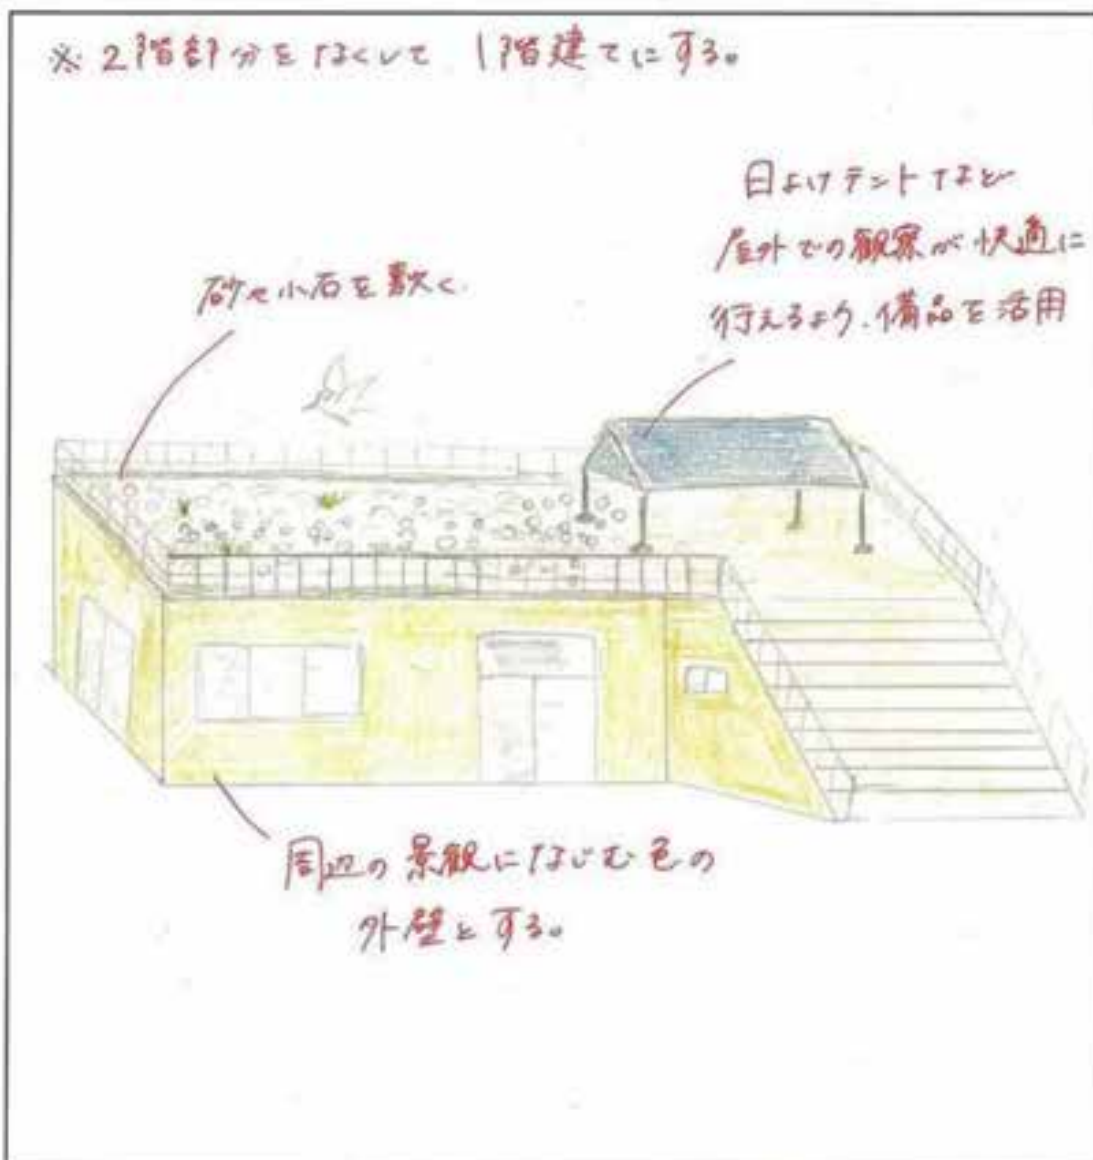 ※ 2階部分をなくして 1階建てにする。
日よけテントなど
屋外での観察が快適に
行えるよう、備品を活用
砂や小石を敷く
周辺の景観になじむ色の
外壁とする。